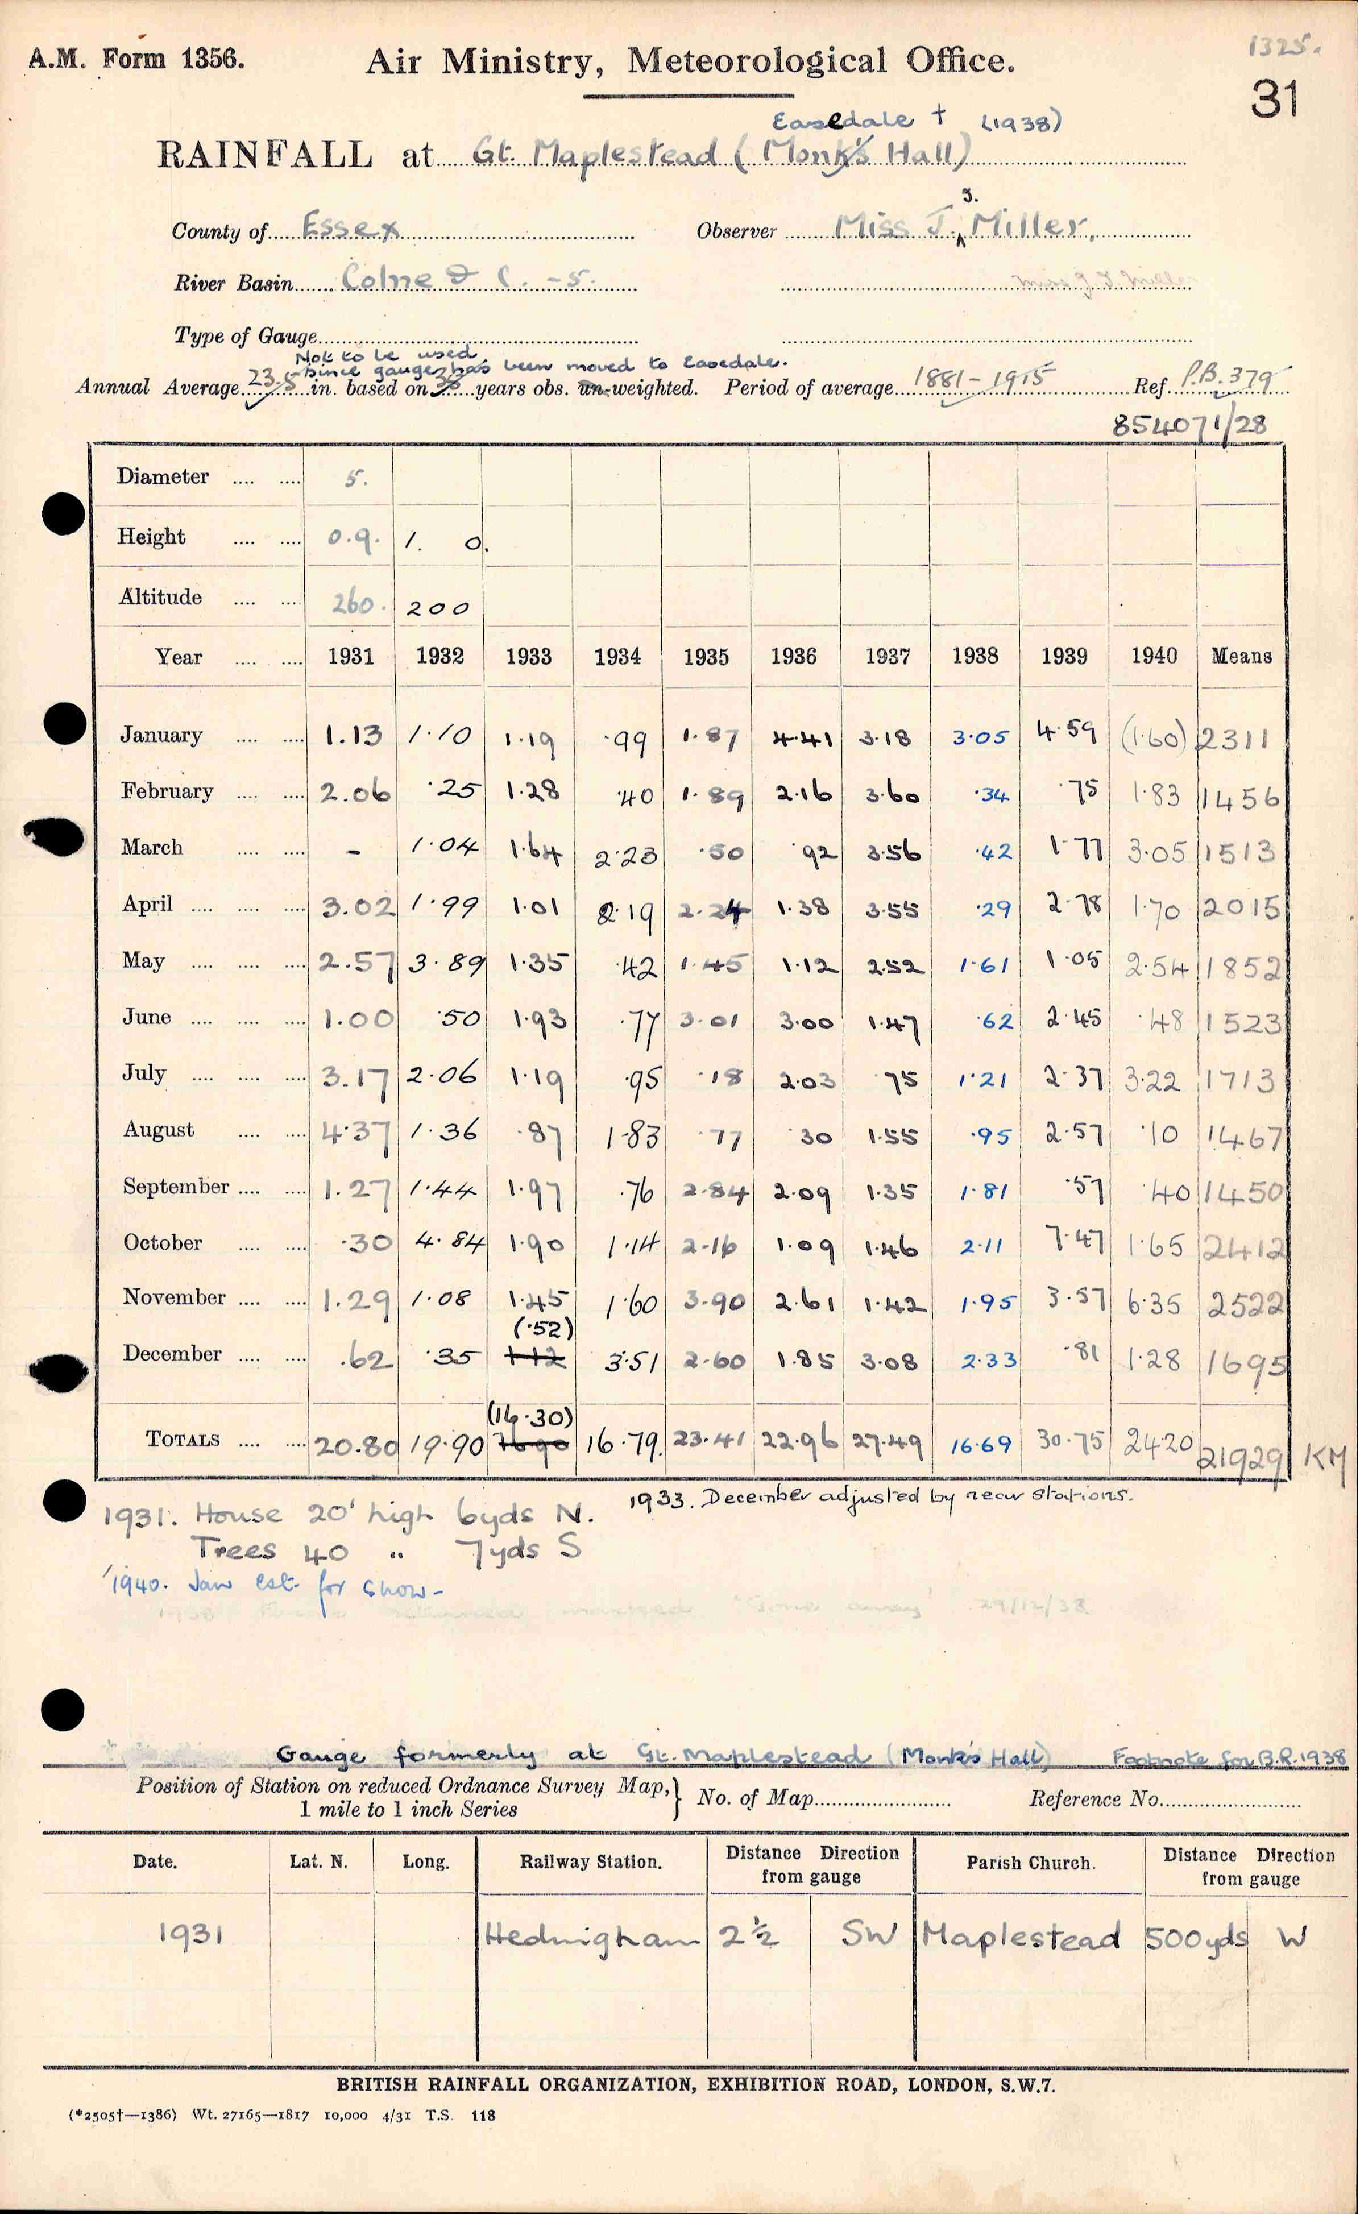 1325.
A.M. Form 1356. Air Ministry, Meteorological Office. 31
Easedale † (1938)
RAINFALL at Gt. Maplestead (Monk's Hall)
County of Essex Observer Miss J. J. Miller.
River Basin Colne & C. -5. Miss J. J. Miller
Type of Gauge
Not to be used
since gauge has been moved to Easedale.
Annual Average 23.5 in. based on 35 years obs. un-weighted. Period of average 1881-1915 Ref P.B.379
854071/28
Diameter 5.
Height 0.9. 1. 0.
Altitude 260. 200
Year 1931 1932 1933 1934 1935 1936 1937 1938 1939 1940 Means
January 1.13 1.10 1.19 .99 1.87 4.41 3.18 3.05 4.59 (1.60) 2311
February 2.06 .25 1.28 .40 1.89 2.16 3.60 .34 .75 1.83 1456
March - 1.04 1.64 2.23 .50 .92 3.56 .42 1.77 3.05 1513
April 3.02 1.99 1.01 2.19 2.24 1.38 3.55 .29 2.78 1.70 2015
May 2.57 3.89 1.35 .42 1.45 1.12 2.52 1.61 1.05 2.54 1852
June 1.00 .50 1.93 .77 3.01 3.00 1.47 .62 2.45 .48 1523
July 3.17 2.06 1.19 .95 .18 2.03 .75 1.21 2.37 3.22 1713
August 4.37 1.36 .87 1.83 .77 .30 1.55 .95 2.57 .10 1467
September 1.27 1.44 1.97 .76 2.84 2.09 1.35 1.81 .57 .40 1450
October .30 4.84 1.90 1.14 2.16 1.09 1.46 2.11 7.47 1.65 2412
November 1.29 1.08 1.45 1.60 3.90 2.61 1.42 1.95 3.57 6.35 2522
(.52)
December .62 .35 1.12 3.51 2.60 1.85 3.08 2.33 .81 1.28 1695
(16.30)
TOTALS 20.80 19.90 16.90 16.79 23.41 22.96 27.49 16.69 30.75 24.20 21929 KM
1933. December adjusted by near stations.
1931. House 20' high 6yds N.
Trees 40 " 7yds S
1940. Jan est. for snow-
returned marked "Gone away" 29/12/38
Gauge formerly at Gt. Maplestead (Monk's Hall) Footnote for B.R. 1938
Position of Station on reduced Ordnance Survey Map, 1 mile to 1 inch Series } No. of Map Reference No.
Date. Lat. N. Long. Railway Station. Distance Direction from gauge Parish Church. Distance Direction from gauge
1931 Hedingham 2½ SW Maplestead 500yds W
BRITISH RAINFALL ORGANIZATION, EXHIBITION ROAD, LONDON, S.W.7.
(*2505†—1386) Wt. 27165—1817 10,000 4/31 T.S. 118